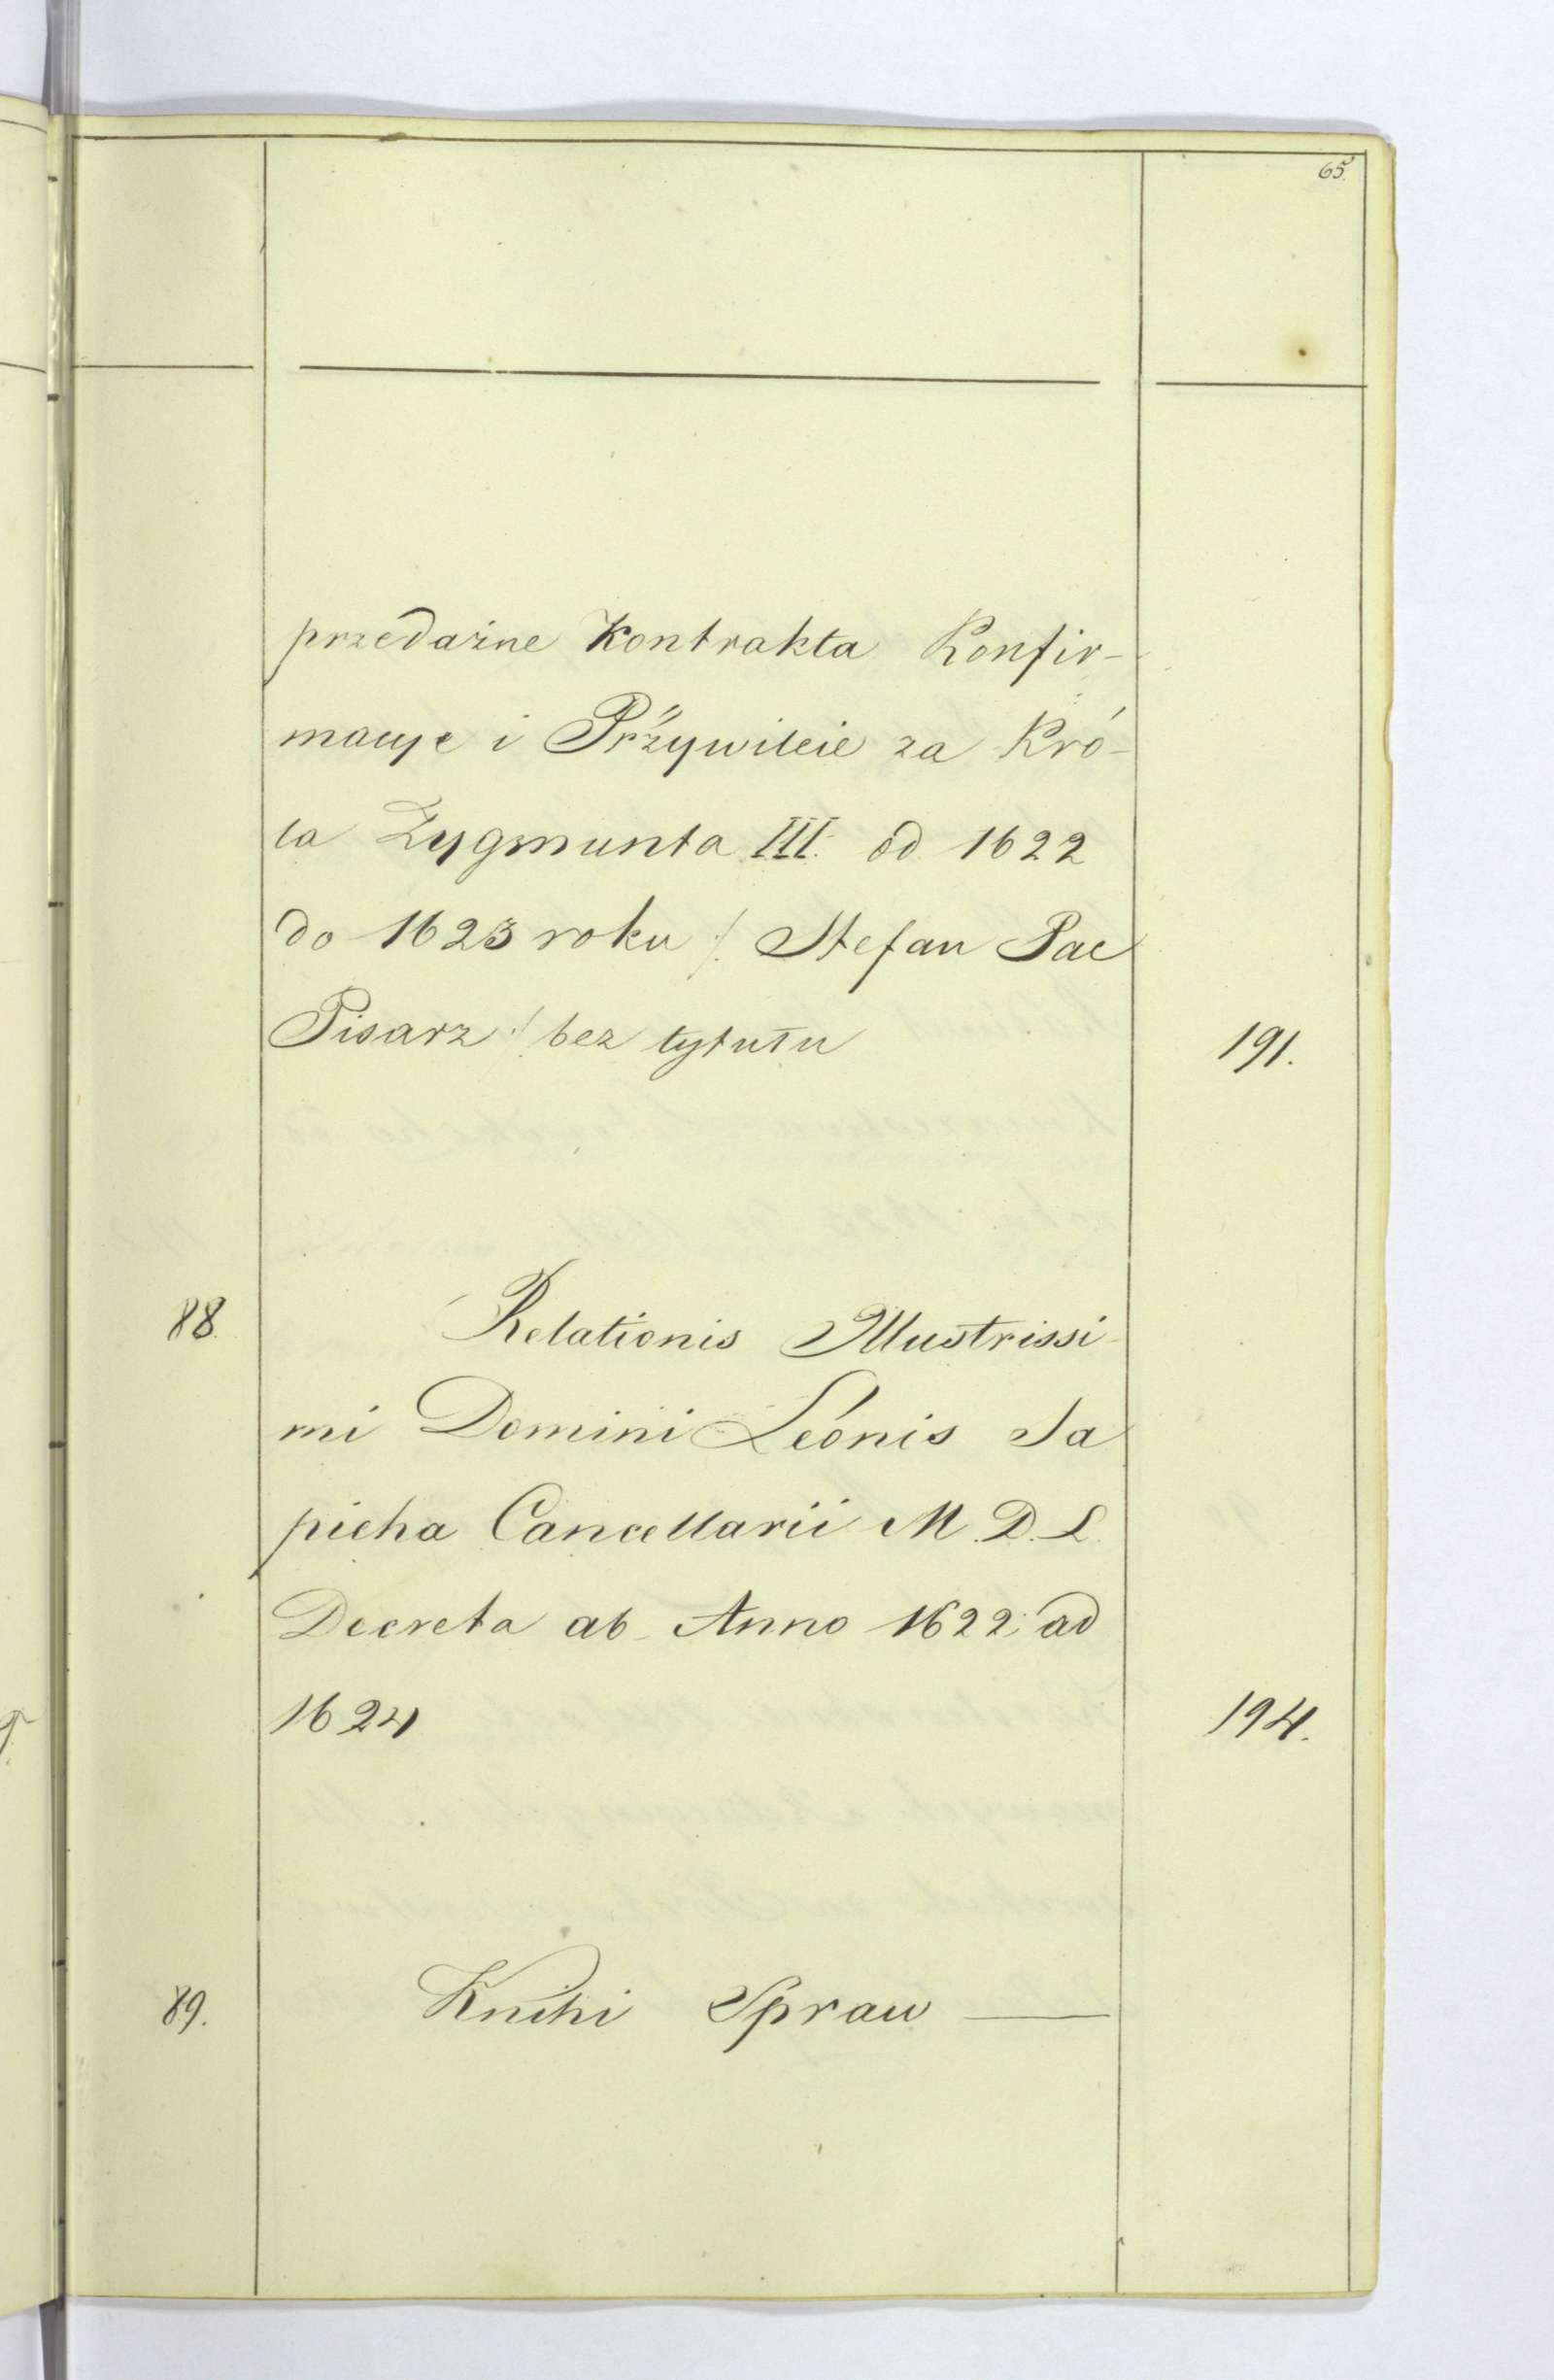 65.
przedażne Kontrakta Konfir-
macye i Przywileie za Kró-
la Zygmunta III. od 1622
do 1623 roku /: Stefan Pac
Pisarz :/ bez tytułu 191.
88. Relationis Illustrissi-
mi Domini Leonis Sa
pieha Cancellarii M. D. L.
Decreta ab Anno 1622 ad
1624 194.
89. Knihi Spraw —